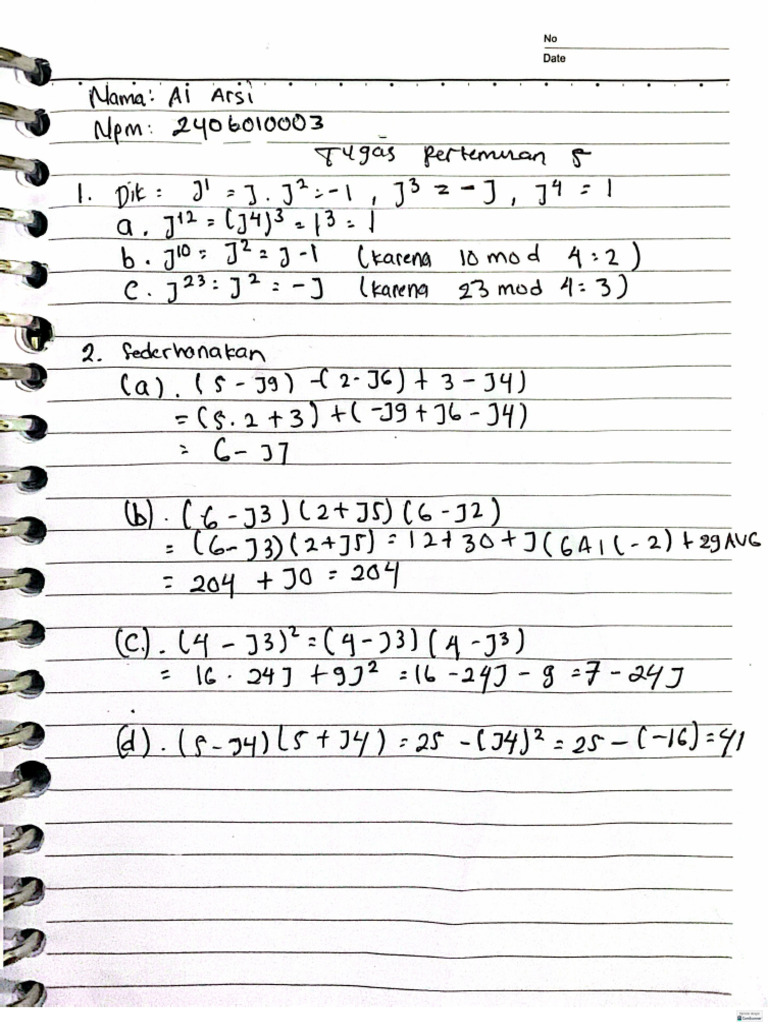 No
Date
Nama: Ai Arsi
Npm: 2406010003
Tugas pertemuan 5
1. Dik: J¹ = J. J² = -1, J³ = -J, J⁴ = 1
a. J¹² = (J4)³ = 1³ = 1
b. J¹⁰ = J² = J-1 (karena 10 mod 4:2)
c. J²³ = J² = -J (karena 23 mod 4:3)
2. Sederhanakan
(a). (5 - J9) -(2-J6) + 3 - J4)
= (5.2 + 3) + (-J9 + J6 - J4)
= 6 - J7
(b). (6 - J3) (2 + J5) (6 - J2)
= (6-J3) (2+J5) = 12 + 30 + J(6A1(-2) + 29AUG
= 204 + J0 = 204
(C.). (4 - J3)² = (4-J3) (4-J³)
= 16 . 24J + 9J² = 16 - 24J - 9 = 7 - 24J
(d). (5-J4) (5 + J4) = 25 - (J4)² = 25 - (-16) = 41